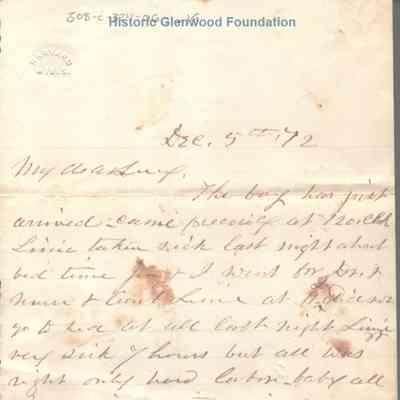 Historic Glenwood Foundation
HARVARD
MILLS
Dec. 5th '72
My dear Lucy,
The boy has just
arrived - came precisely at 12 oclock
Linie taken sick last night about
bed time I went for Dr. &
nurse & Aunt at did not
go to bed at all last night Linie
very sick 7 hours but all was
right only hard labor - baby all